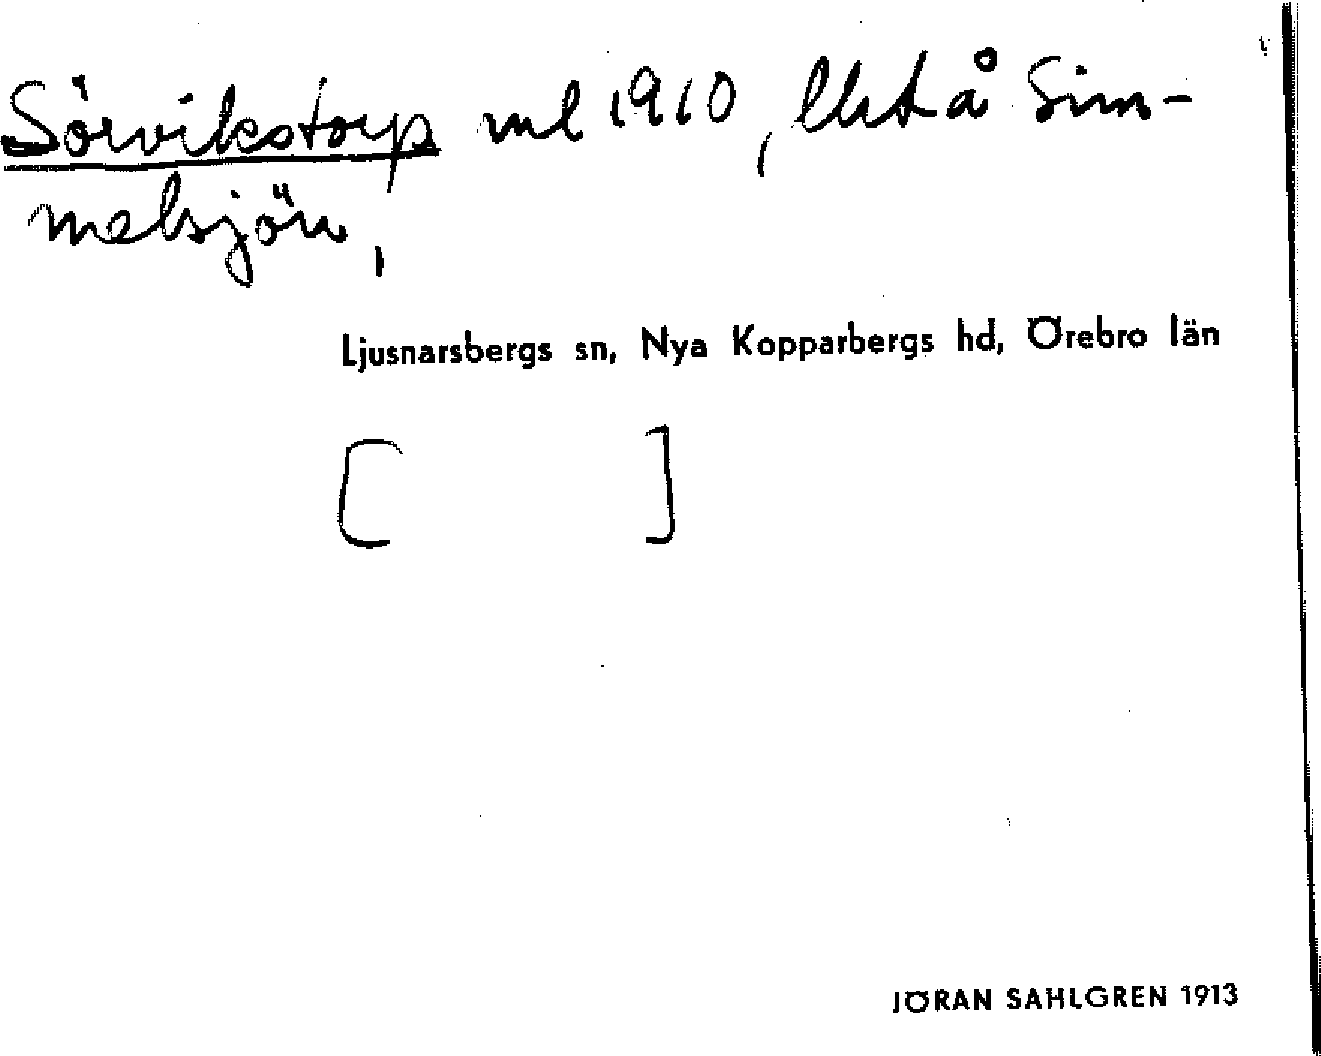 Sörvikstorp ml 1910, lht å Sim-
melsjön,
Ljusnarsbergs sn, Nya Kopparbergs hd, Örebro län
[ ]
JÖRAN SAHLGREN 1913